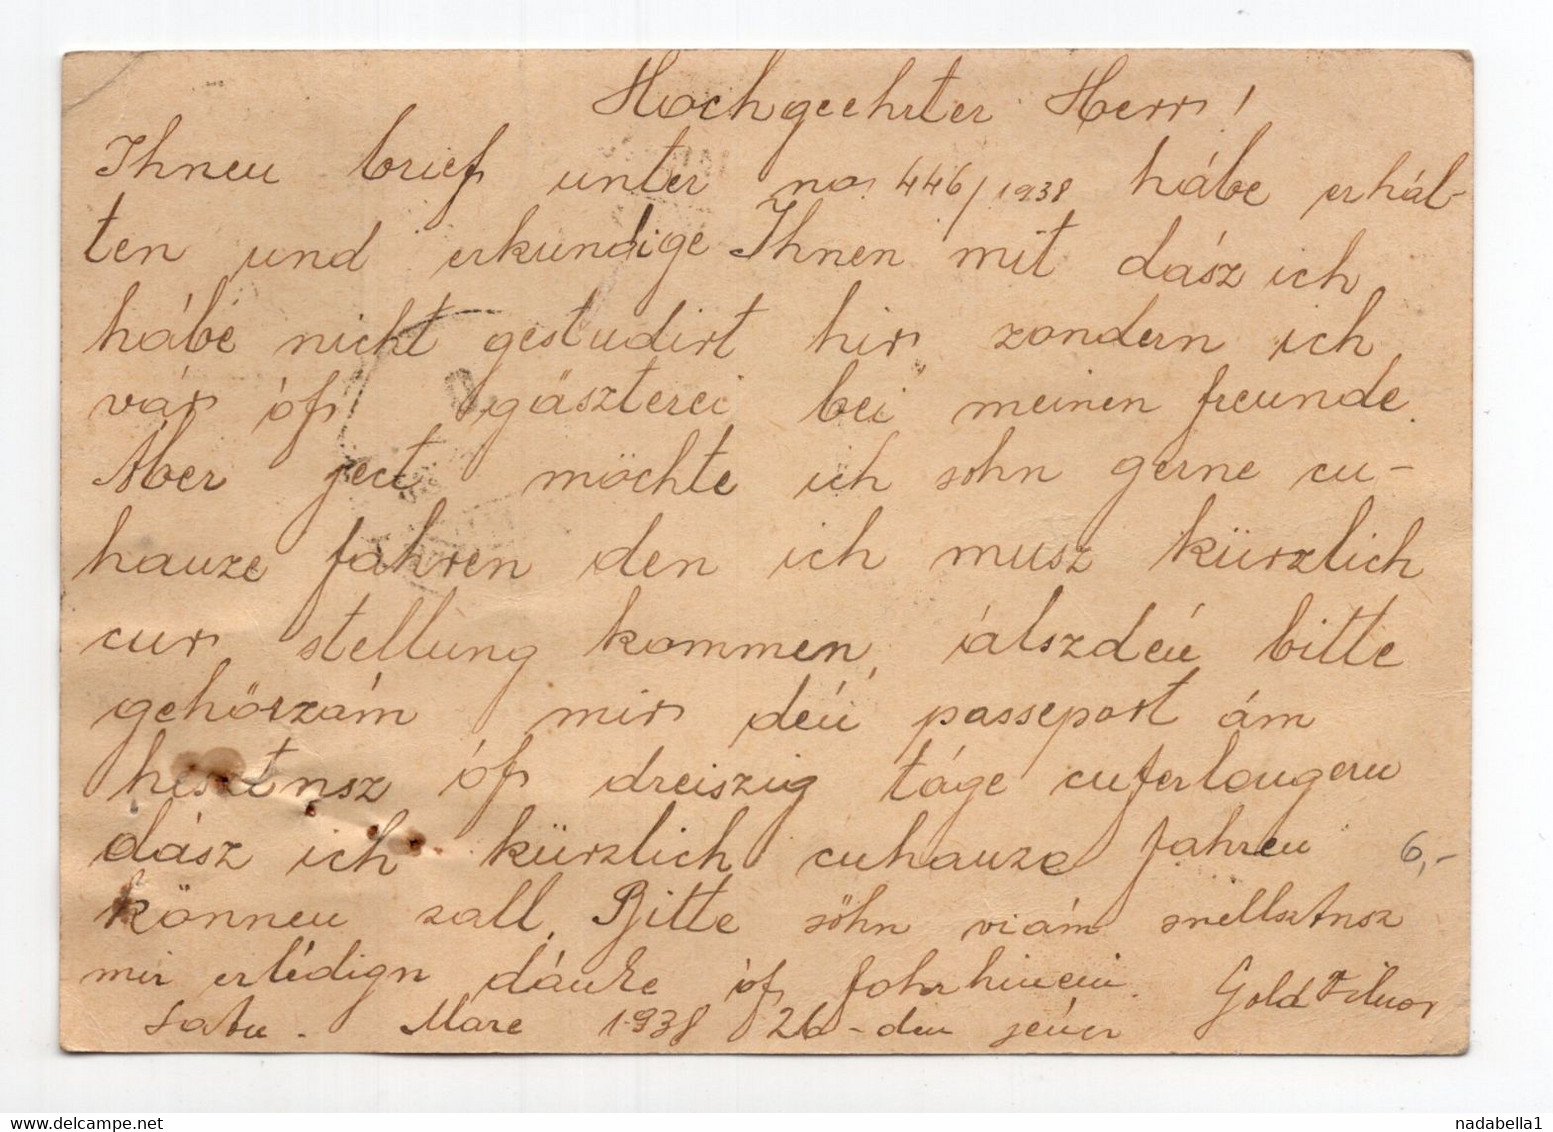 Hochgeehrter Herr!
Ihneu brief unter no. 446/1938 hábe erháb-
ten und erkundige Ihnen mit dász ich
hábe nicht gestudirt hir zondern ich
vár óf gäszterei bei meinen freunde.
Áber ject möchte ich sohn gerne cu-
hauze fahren den ich musz kürzlich
cur stellung kommen, álszdéu bitte
gehörzám mir déú passeport ám
óf dreiszig táge cuferlougeru
dász ich kürzlich cuhauze fahreu
könneu zoll. Bitte söhn viám snellsztnsz
mir erlédign dáuke óf fohrhineiu. Gold
Satu - Mare 1938 26-deu
6,-
nadabella1